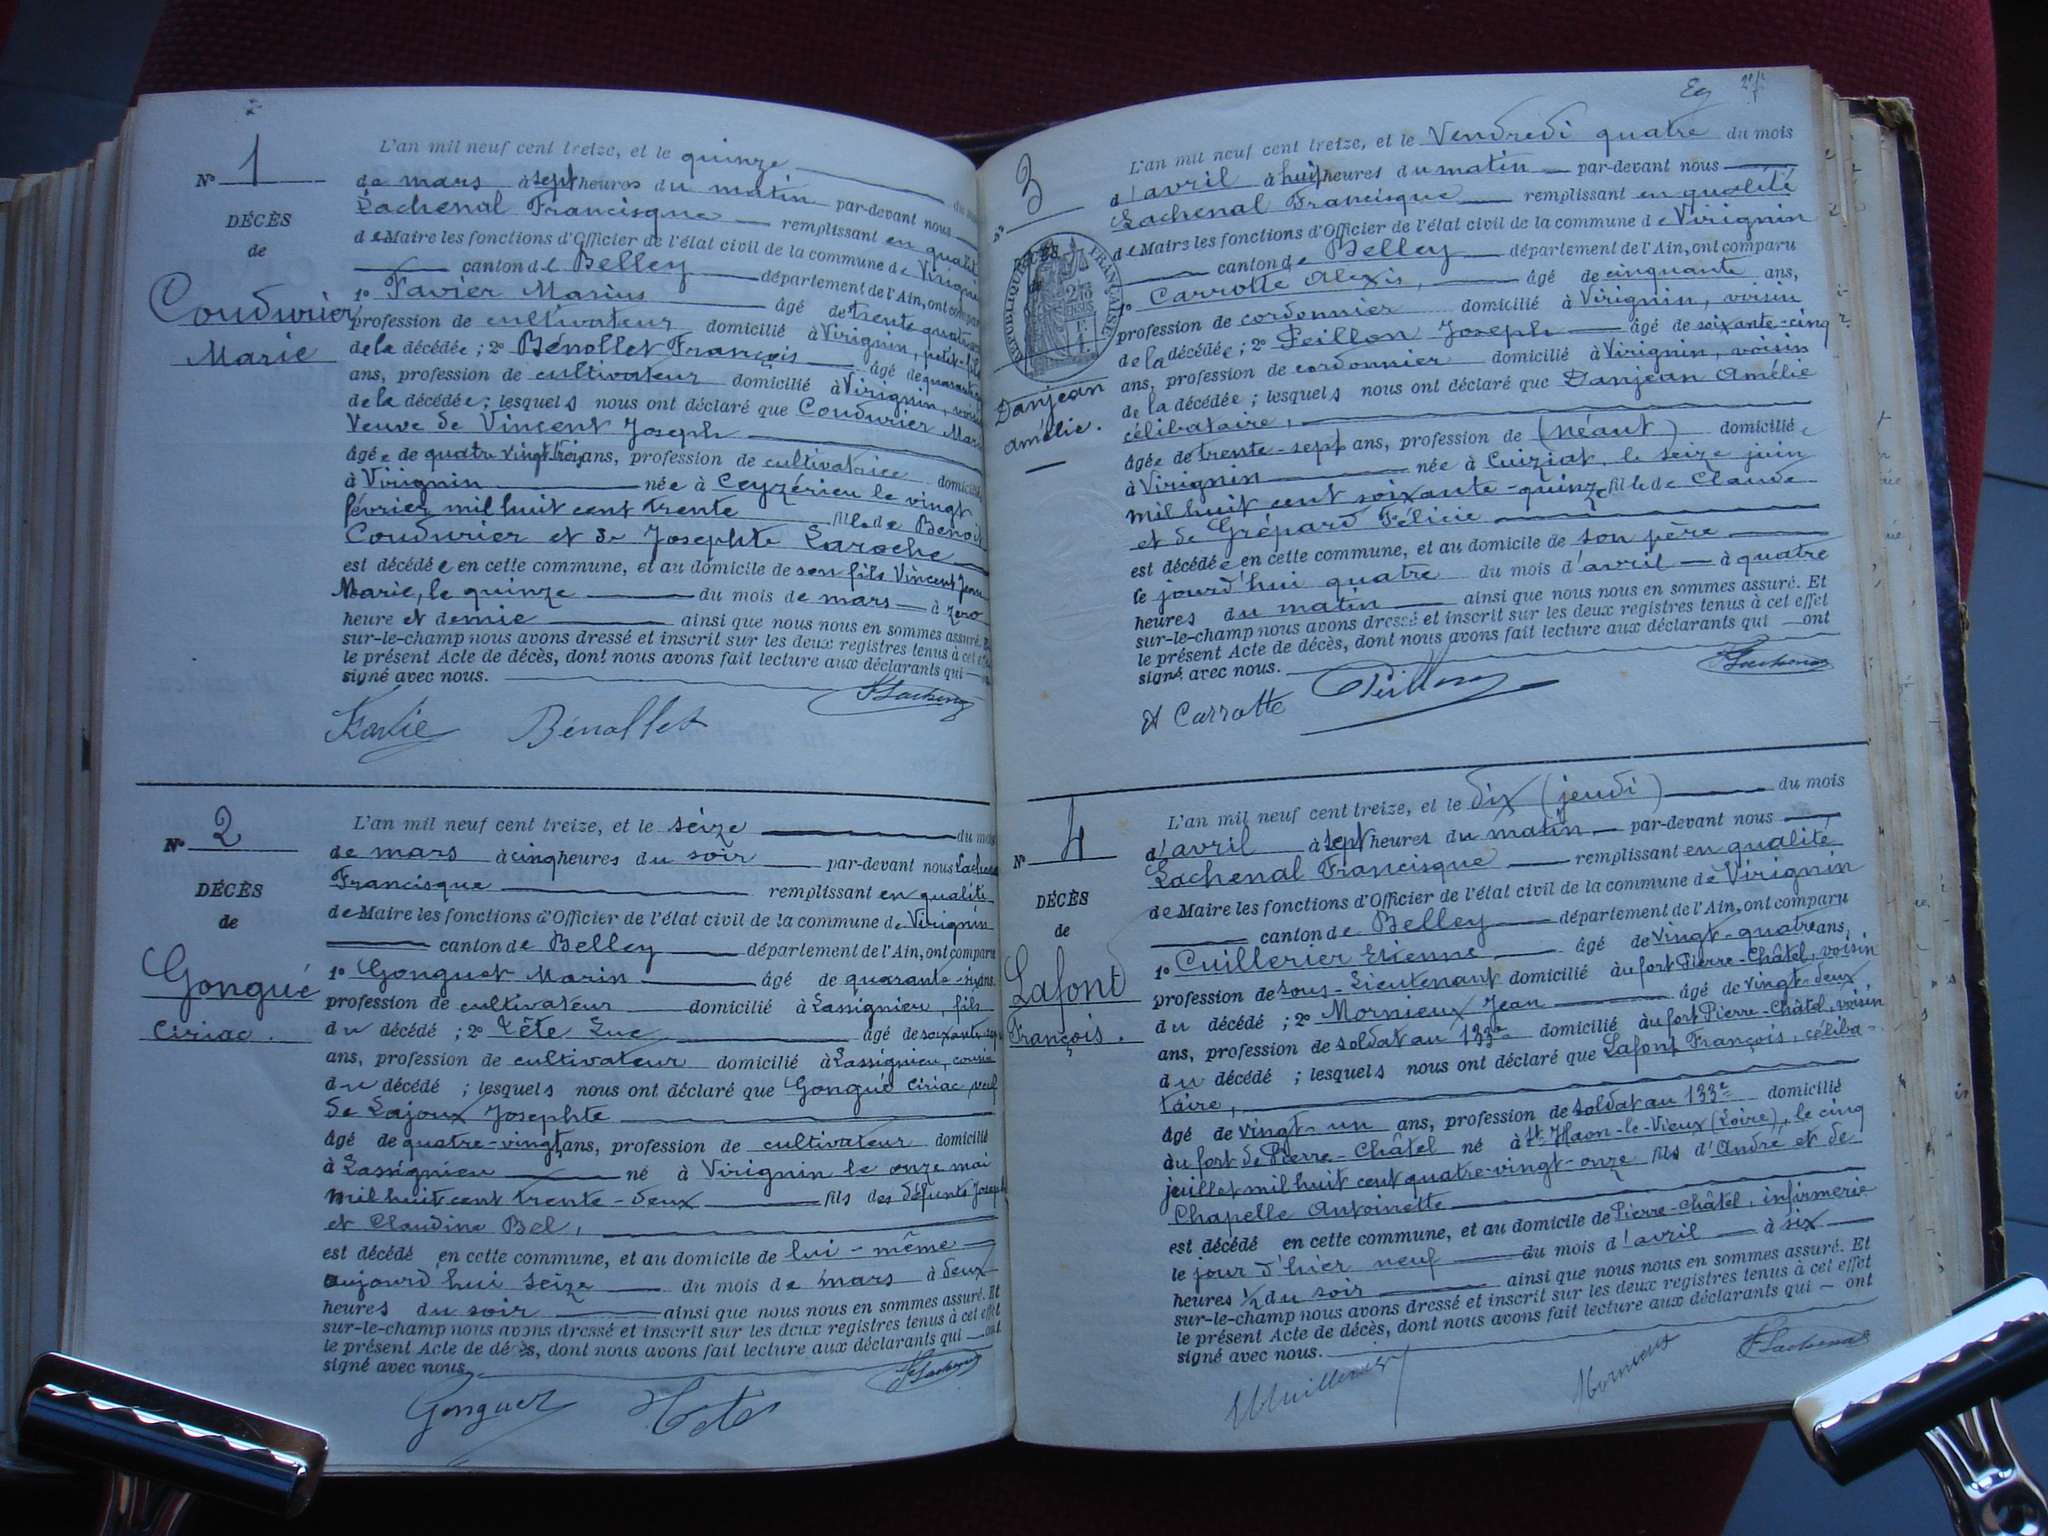 1
L'an mil neuf cent treize, et le quinze
Nº
de mars à sept heures du matin par-devant nous
DÉCÈS
Lachenal Francisque remplissant en qualité
de
de Maire les fonctions d'Officier de l'état civil de la commune de Virignin
canton de Belley département de l'Ain, ont comparu
Coudurier
Marie
1º Favier Marius âgé de trente quatre
profession de cultivateur domicilié à Virignin, petit-fils
de la décédée ; 2º Bénollet François âgé de quarante
ans, profession de cultivateur domicilié à Virignin, voisin
de la décédée ; lesquels nous ont déclaré que Coudurier Marie
Veuve de Vincent Joseph
âgée de quatre vingt trois ans, profession de cultivatrice domiciliée
à Virignin née à Ceyzérieu le vingt
février mil huit cent trente fille de Benoit
Coudurier et de Josephte Laroche
est décédée en cette commune, et au domicile de son fils Vincent Jean
Marie, le quinze du mois de mars à zéro
heure et demie ainsi que nous nous en sommes assuré. Et
sur-le-champ nous avons dressé et inscrit sur les deux registres tenus à cet effet
le présent Acte de décès, dont nous avons fait lecture aux déclarants qui ont
signé avec nous.
FLachenal
Favier Bénollet
2
L'an mil neuf cent treize, et le seize du mois
Nº
de mars à cinq heures du soir par-devant nous Lachenal
DÉCÈS
Francisque remplissant en qualité
de
de Maire les fonctions d'Officier de l'état civil de la commune de Virignin
canton de Belley département de l'Ain, ont comparu
Gongué
Ciriac.
1º Gonguet Marin âgé de quarante-six ans
profession de cultivateur domicilié à Lassignieu, fils
du décédé ; 2º Tête Luc âgé de soixante-sept
ans, profession de cultivateur domicilié à Lassignieu, cousin
du décédé ; lesquels nous ont déclaré que Gongué Ciriac, veuf
de Lajoux Josephte
âgé de quatre-vingt ans, profession de cultivateur domicilié
à Lassignieu né à Virignin le onze mai
mil huit cent trente-deux fils des défunts Joseph
et Claudine Bel,
est décédé en cette commune, et au domicile de lui-même
aujourd'hui seize du mois de mars à deux
heures du soir ainsi que nous nous en sommes assuré. Et
sur-le-champ nous avons dressé et inscrit sur les deux registres tenus à cet effet
le présent Acte de décès, dont nous avons fait lecture aux déclarants qui ont
signé avec nous.
FLachenal
Gonguet
3
L'an mil neuf cent treize, et le Vendredi quatre du mois
Nº
d'avril à huit heures du matin par-devant nous
Lachenal Francisque remplissant en qualité
DÉCÈS
de
de Maire les fonctions d'Officier de l'état civil de la commune de Virignin
canton de Belley département de l'Ain, ont comparu
RÉPUBLIQUE FRANÇAISE
1º Carrotte Alexis, âgé de cinquante ans,
profession de cordonnier domicilié à Virignin, voisin
de la décédée ; 2º Peillon Joseph âgé de soixante-cinq
ans, profession de cordonnier domicilié à Virignin, voisin
Danjean
Amélie.
de la décédée ; lesquels nous ont déclaré que Danjean Amélie
célibataire,
âgée de trente-sept ans, profession de (néant) domiciliée
à Virignin née à Cuiziat, le seize juin
mil huit cent soixante-quinze fille de Claude
et de Grépard Félicie
est décédée en cette commune, et au domicile de son père
le jourd'hui quatre du mois d'avril à quatre
heures du matin ainsi que nous nous en sommes assuré. Et
sur-le-champ nous avons dressé et inscrit sur les deux registres tenus à cet effet
le présent Acte de décès, dont nous avons fait lecture aux déclarants qui ont
signé avec nous.
FLachenal
A Carrotte Peillon
4
L'an mil neuf cent treize, et le dix (jeudi) du mois
Nº
d'avril à sept heures du matin par-devant nous
Lachenal Francisque remplissant en qualité
DÉCÈS
de
de Maire les fonctions d'Officier de l'état civil de la commune de Virignin
canton de Belley département de l'Ain, ont comparu
Lafond
François.
1º Cuillerier Etienne âgé de vingt-quatre ans,
profession de sous-Lieutenant domicilié au fort Pierre-Châtel, voisin
du décédé ; 2º Mornieux Jean âgé de vingt-deux
ans, profession de soldat au 133e domicilié au fort Pierre-Châtel, voisin
du décédé ; lesquels nous ont déclaré que Lafont François, céliba-
taire,
âgé de vingt-un ans, profession de soldat au 133e domicilié
au fort de Pierre-Châtel né à St Haon-le-Vieux (Loire), le cinq
juillet mil huit cent quatre-vingt-onze fils d'André et de
Chapelle Antoinette
est décédé en cette commune, et au domicile de Pierre-Châtel, infirmerie
le jour d'hier neuf du mois d'avril à six
heures ½ du soir ainsi que nous nous en sommes assuré. Et
sur-le-champ nous avons dressé et inscrit sur les deux registres tenus à cet effet
le présent Acte de décès, dont nous avons fait lecture aux déclarants qui ont
signé avec nous.
Mornieux FLachenal